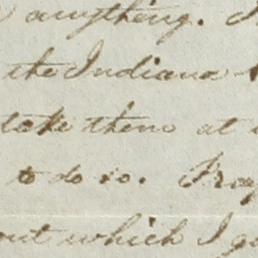 anything. I
the Indiana
take them at
to do so. Pray
out which I go